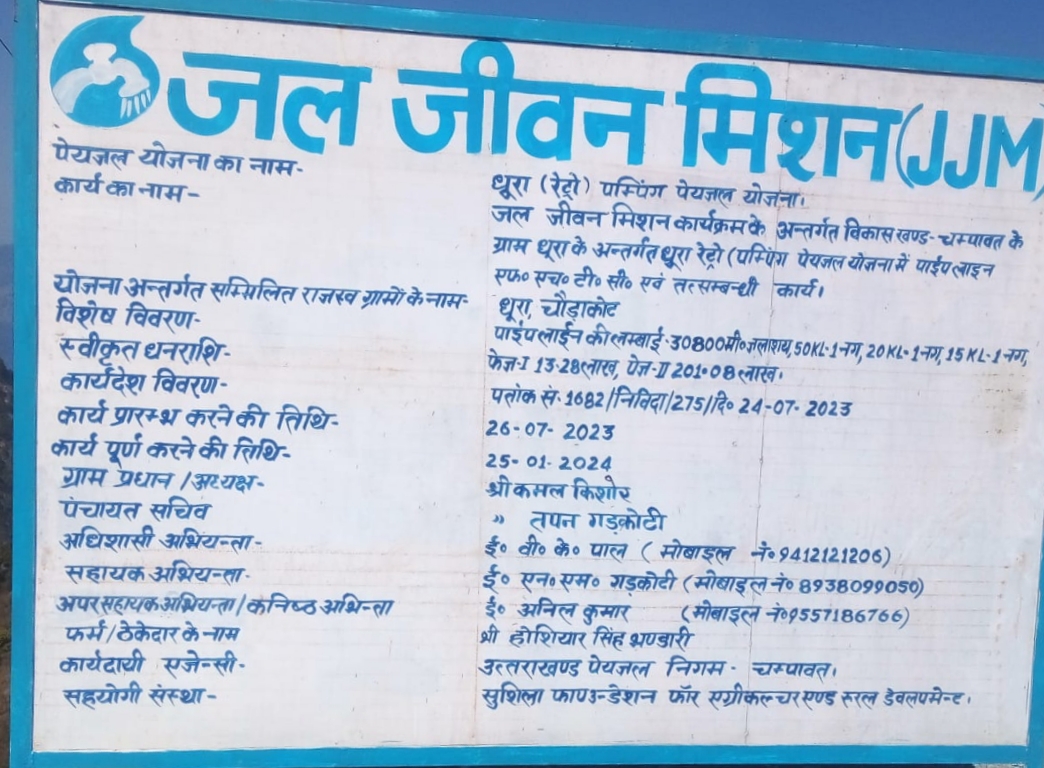 जल जीवन मिशन (JJM)
पेयजल योजना का नाम- धूरा (रेट्रो) पम्पिंग पेयजल योजना।
कार्य का नाम- जल जीवन मिशन कार्यक्रम के अन्तर्गत विकास खण्ड- चम्पावत के
ग्राम धूरा के अन्तर्गत धूरा रेट्रो (पम्पिंग पेयजल योजना में पाईप लाइन
एफ० एच० टी० सी० एवं तत्सम्बन्धी कार्य।
योजना अन्तर्गत सम्मिलित राजस्व ग्रामों के नाम- धूरा, चौड़ाकोट
विशेष विवरण- पाईप लाईन की लम्बाई-30800मी० जलाशय, 50KL-1नग, 20KL-1नग, 15KL-1नग,
स्वीकृत धनराशि- फेज-I 13.28लाख, पेज-II 201.08लाख।
कार्यदेश विवरण- पतांक सं- 1682/निविदा/275/दि० 24-07-2023
कार्य प्रारम्भ करने की तिथि- 26-07-2023
कार्य पूर्ण करने की तिथि- 25-01-2024
ग्राम प्रधान/अध्यक्ष- श्री कमल किशोर
पंचायत सचिव " तपन गड़कोटी
अधिशासी अभियन्ता- ई० वी० के० पाल (मोबाइल नं० 9412121206)
सहायक अभियन्ता- ई० एन० एम० गड़कोटी (मोबाइल नं० 8938099050)
अपर सहायक अभियन्ता/कनिष्ठ अभिन्ता ई० अनिल कुमार (मोबाइल नं० 9557186766)
फर्म/ठेकेदार के नाम श्री होशियार सिंह भण्डारी
कार्यदायी एजेन्सी- उत्तराखण्ड पेयजल निगम- चम्पावत।
सहयोगी संस्था- सुशिला फाण्उन्डेशन फॉर एग्रीकल्चर एण्ड रूरल डेवलपमेन्ट।